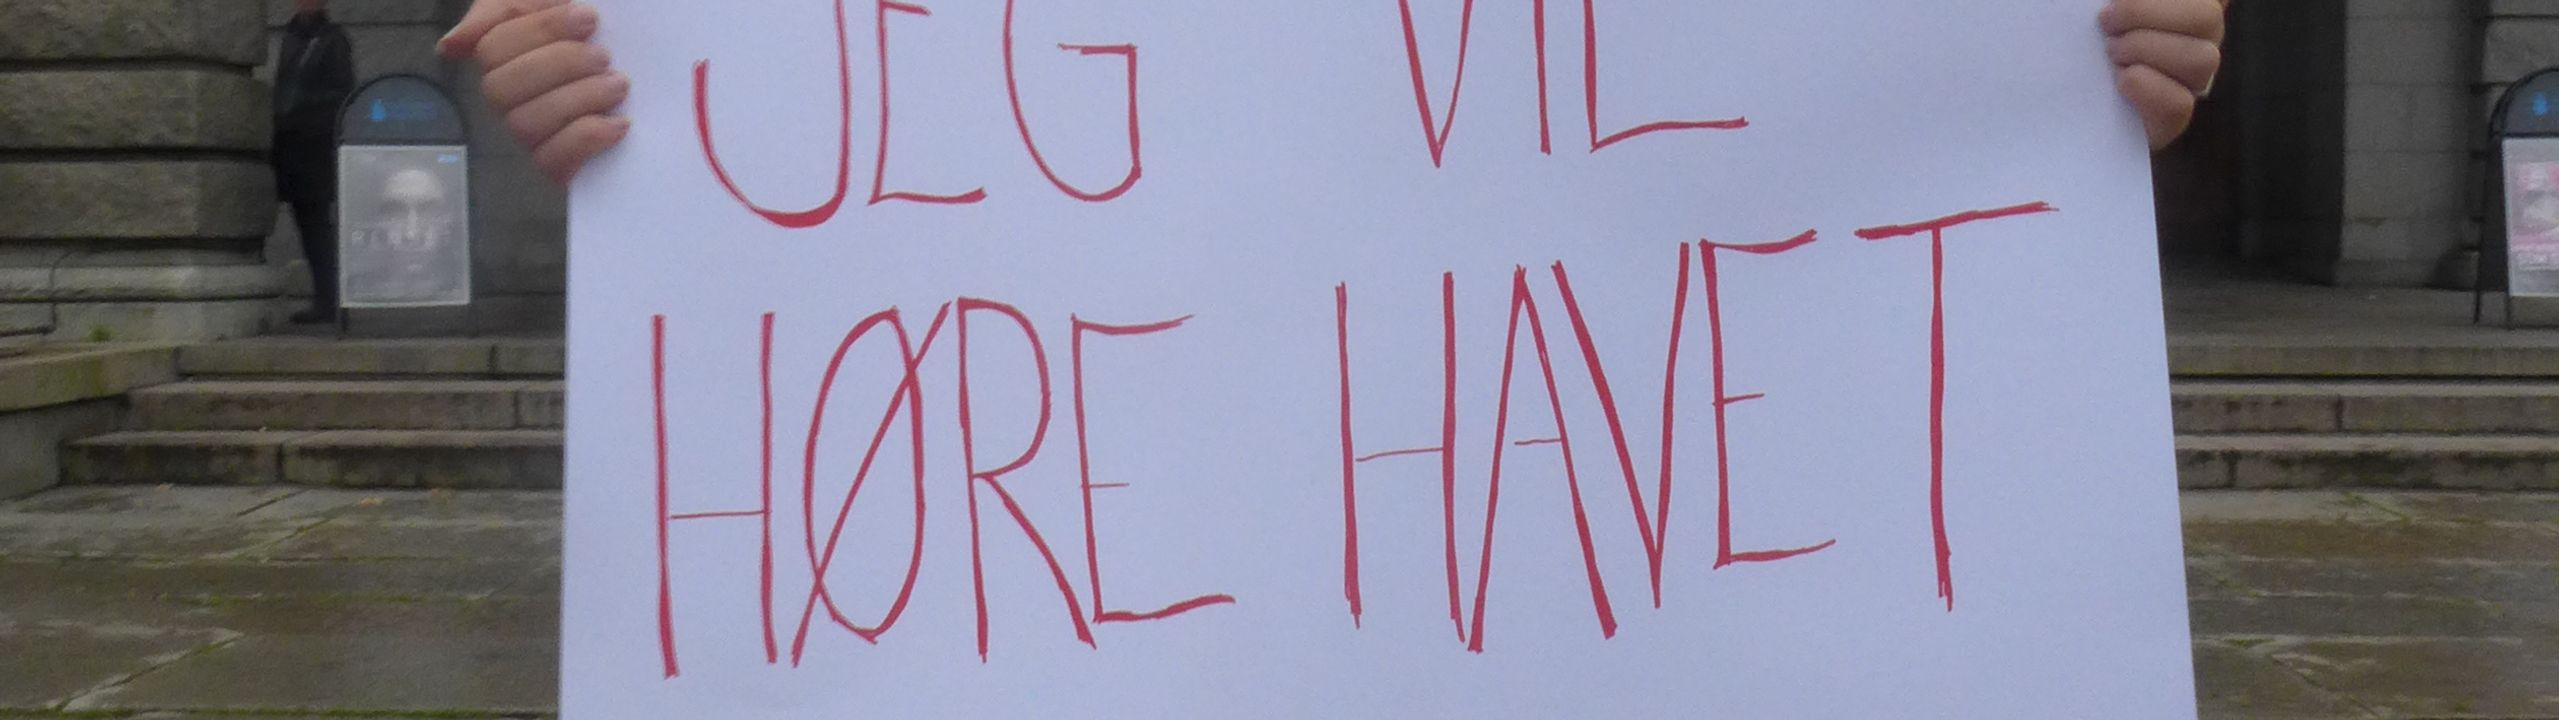 JEG VIL
HØRE HAVET